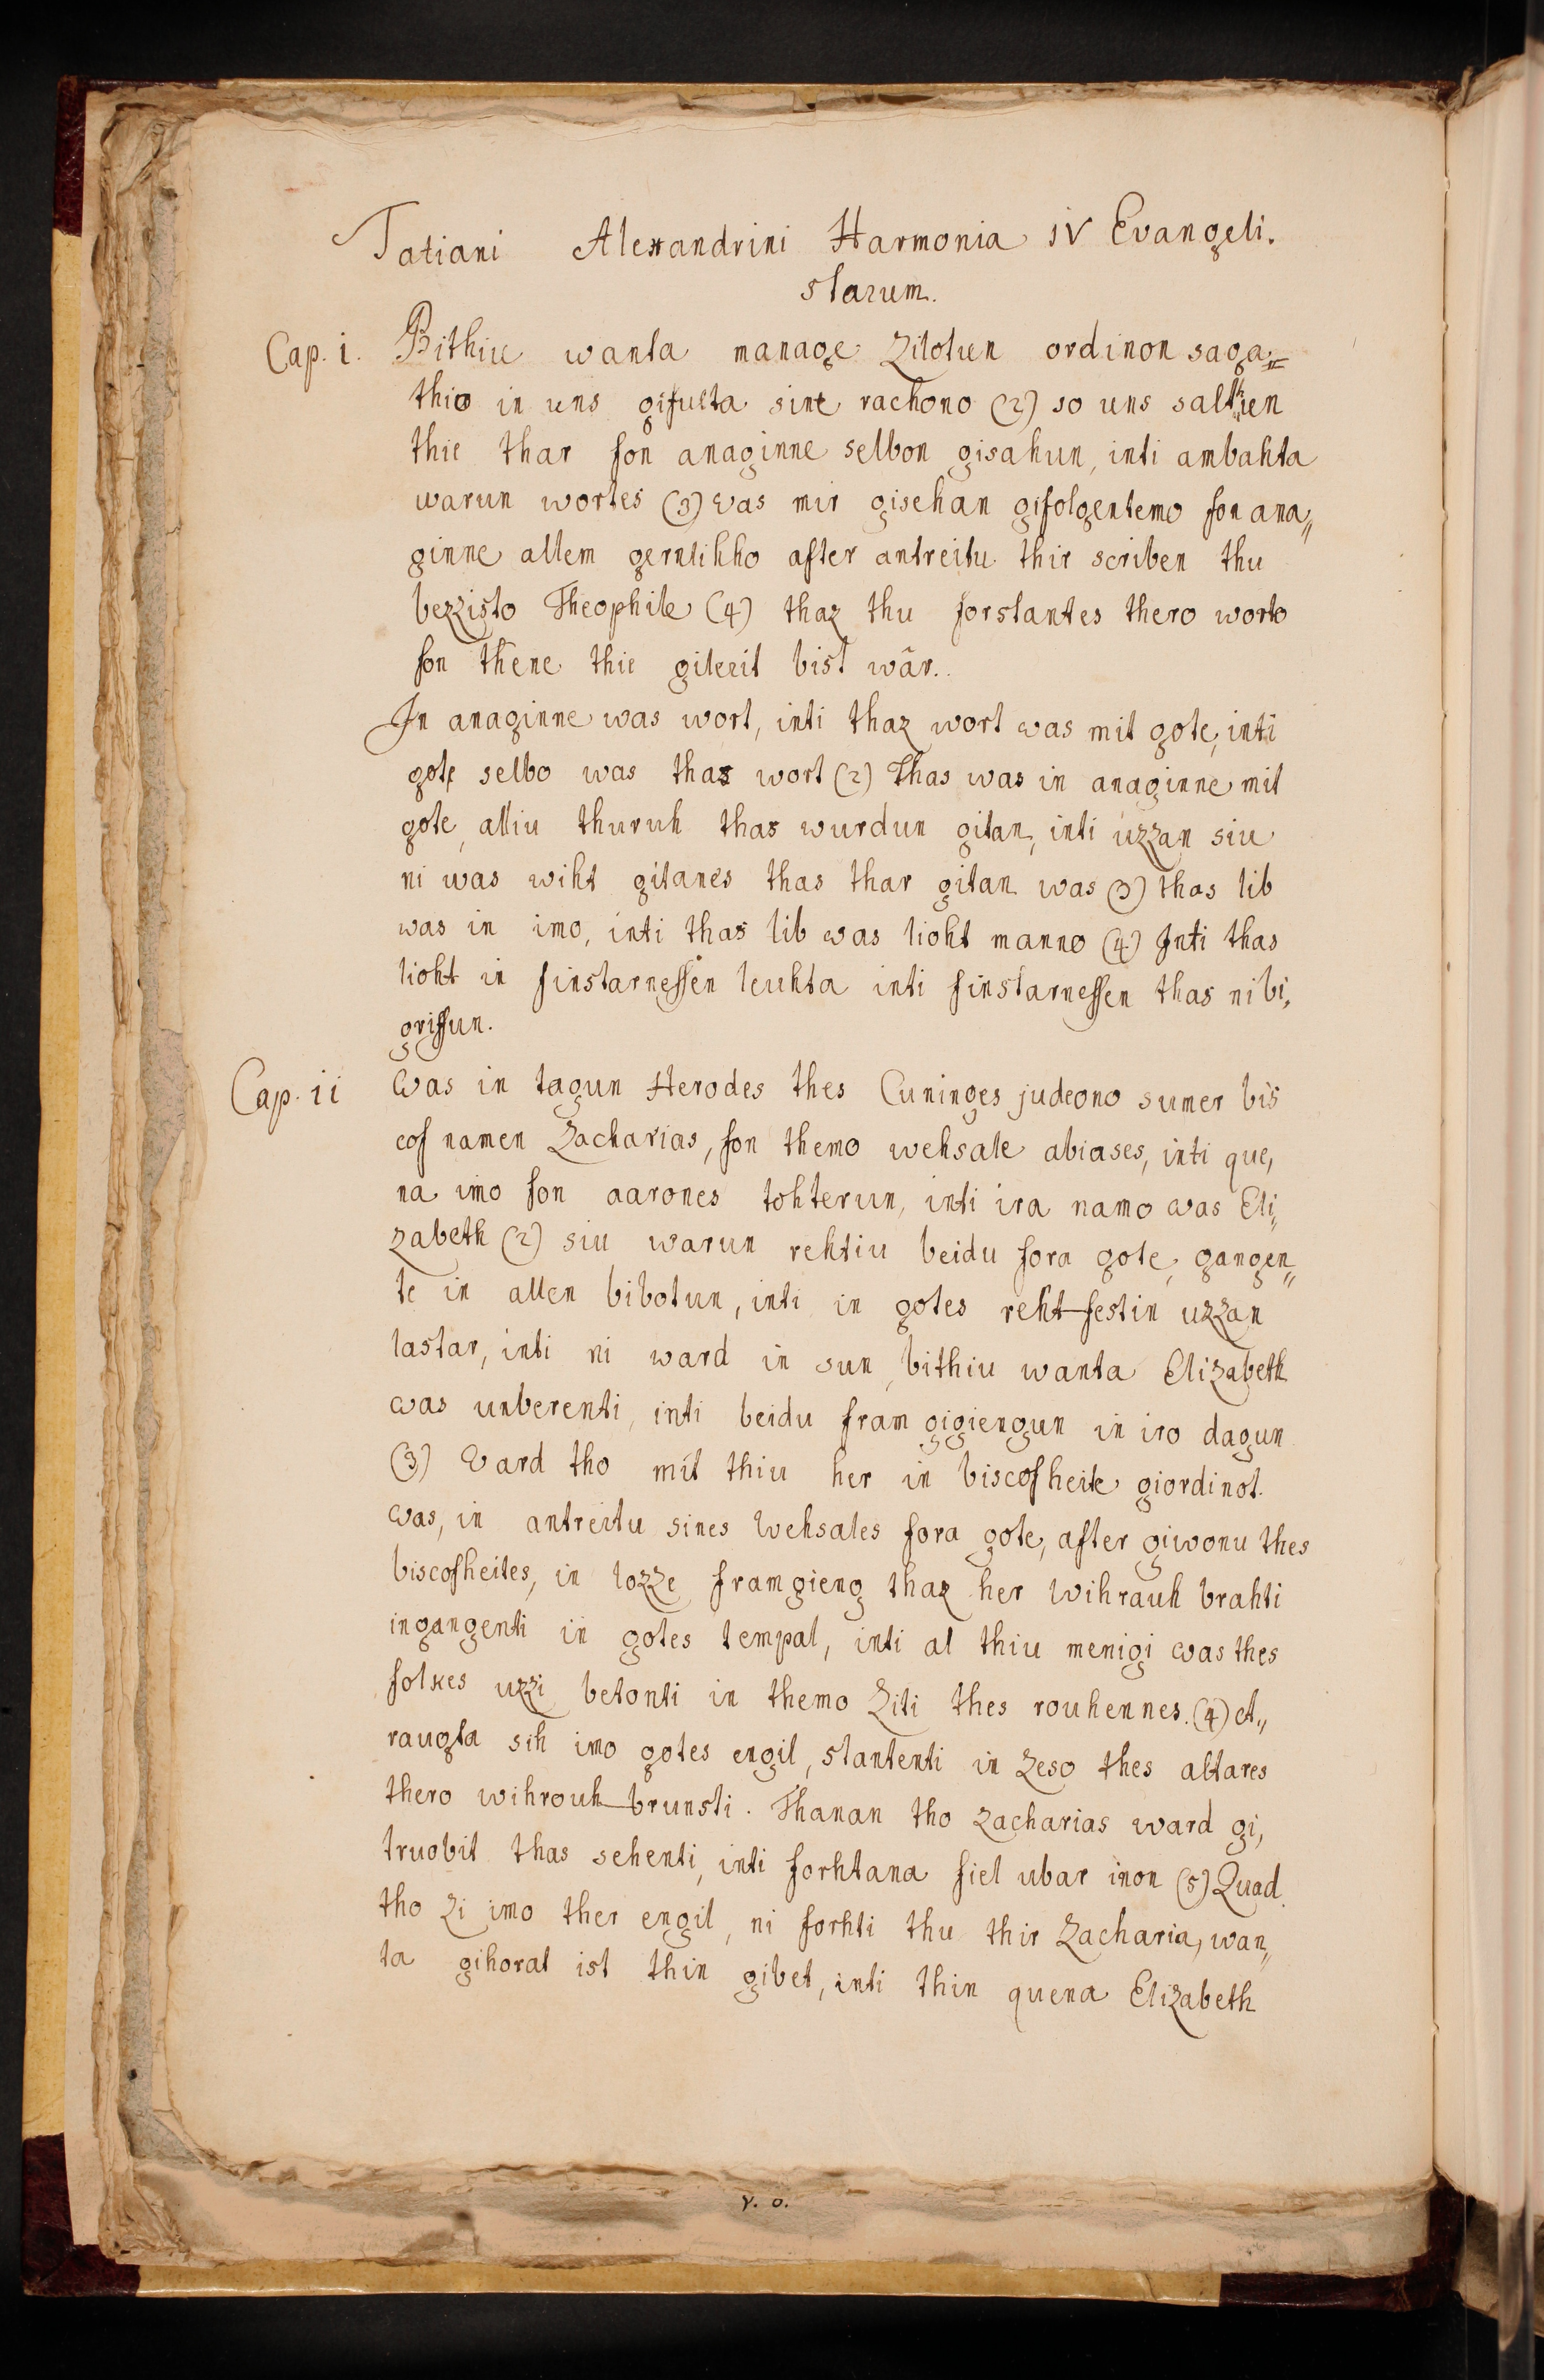 Tatiani Alexandrini Harmonia IV Evangeli.
starum.
Cap. i. Bithiu wanta manage Zilotun ordinon saga=
thio in uns gifulta sint rachono (2) so uns saltun
thie thar fon anaginne selbon gisahun, inti ambahta
warun wortes (3) was mir gisehan gifolgentemo fon ana„
ginne allem gernlihho after antreitu thir scriben thu
bezzisto Theophile (4) thaz thu forstantes thero worto
fon thene thie gileeit bist wâr..
In anaginne was wort, inti thaz wort was mit gote, inti
got selbo was thas wort (2) Thas was in anaginne mit
gote, alliu thuruh thas wurdun gitan, inti uzzan siu
ni was wiht gitanes thas thar gitan was (3) thas lib
was in imo, inti thas lib was lioht manno (4) Inti thas
lioht in finstarnessen leuhta inti finstarnessen thas ni bi,
griffun.
Cap. ii Was in tagun Herodes thes Cuninges judeono sumer bis
cof namen Zacharias, fon themo wehsale abiases, inti que,
na imo fon aarones tohterun, inti ira namo was Eli„
zabeth (2) siu warun rehtiu beidu fora gote, gangen„
te in allen bibotun, inti in gotes reht-festin uzzan
lastar, inti ni ward in sun, bithiu wanta Elizabeth
was unberenti, inti beidu fram gigiengun in iro dagun
(3) Ward tho mit thiu her in biscofheite giordinot
was, in antreitu sines wehsales fora gote, after giwonu thes
biscofheites, in lozze framgieng thaz her wihrauh brahti
ingangenti in gotes tempal, inti al thiu menigi was thes
folkes uzzi betonti in themo Ziti thes rouhennes. (4) et„
raugta sih imo gotes engil, stantenti in zeso thes altares
thero wihrouh-brunsti. Thanan tho Zacharias ward gi,
truobit thas sehenti, inti forhtana fiel ubar inon (5) Quad
tho zi imo ther engil, ni forhti thu thir Zacharia, wan„
ta gihorat ist thin gibet, inti thin quena Elizabeth
v. o.